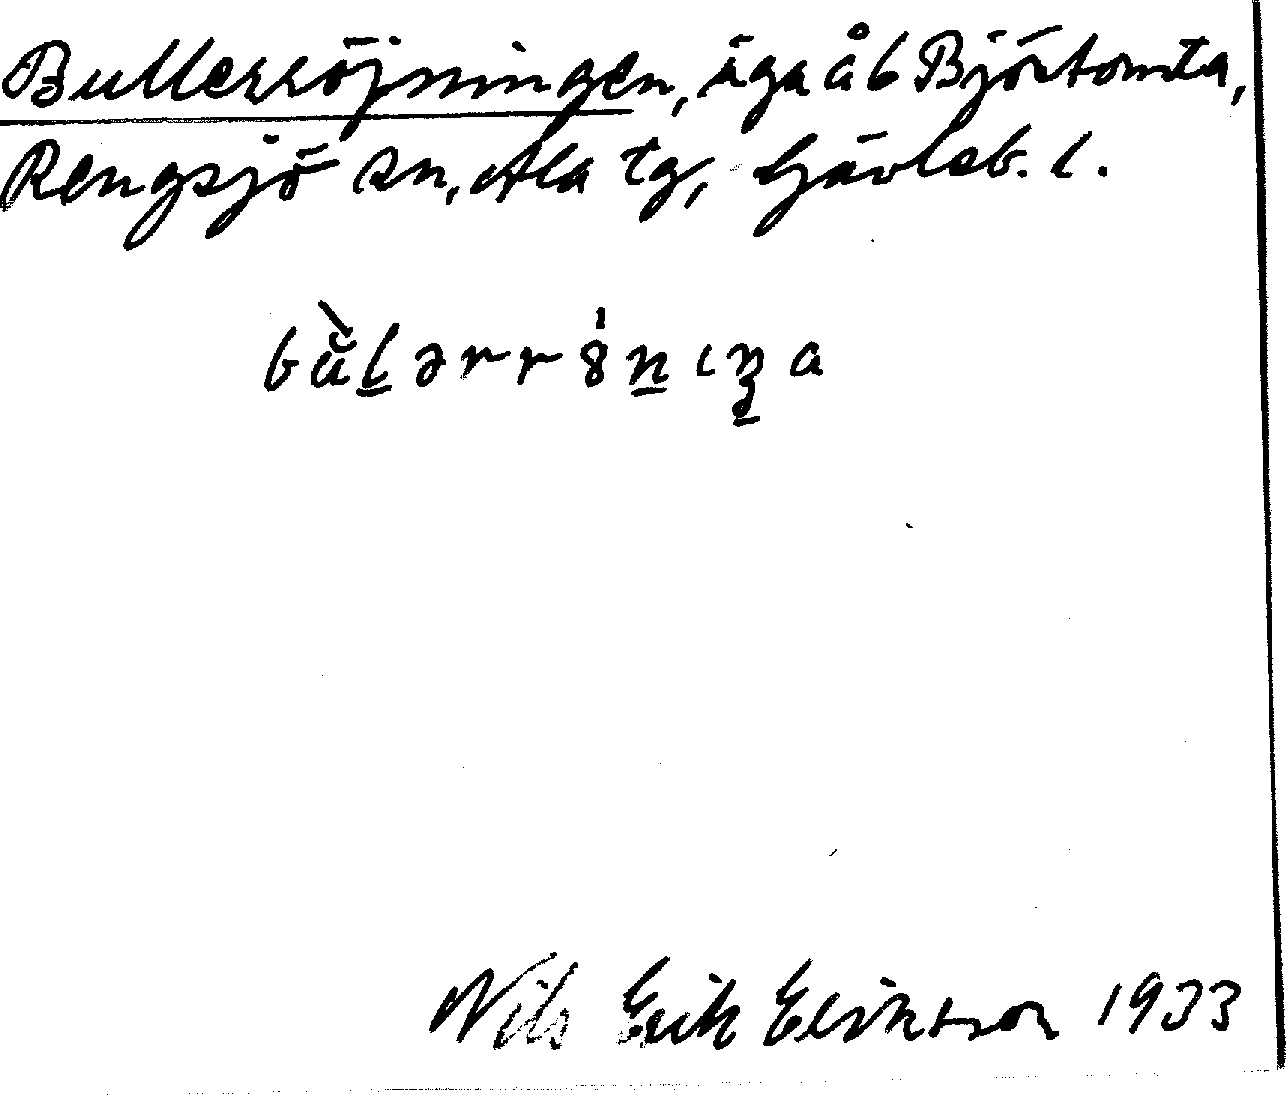 Bullerröjningen, äga å b Björtomta,
Rengsjö sn, Ala tg, Gävleb. l.
Nils Erik Eriksson 1933